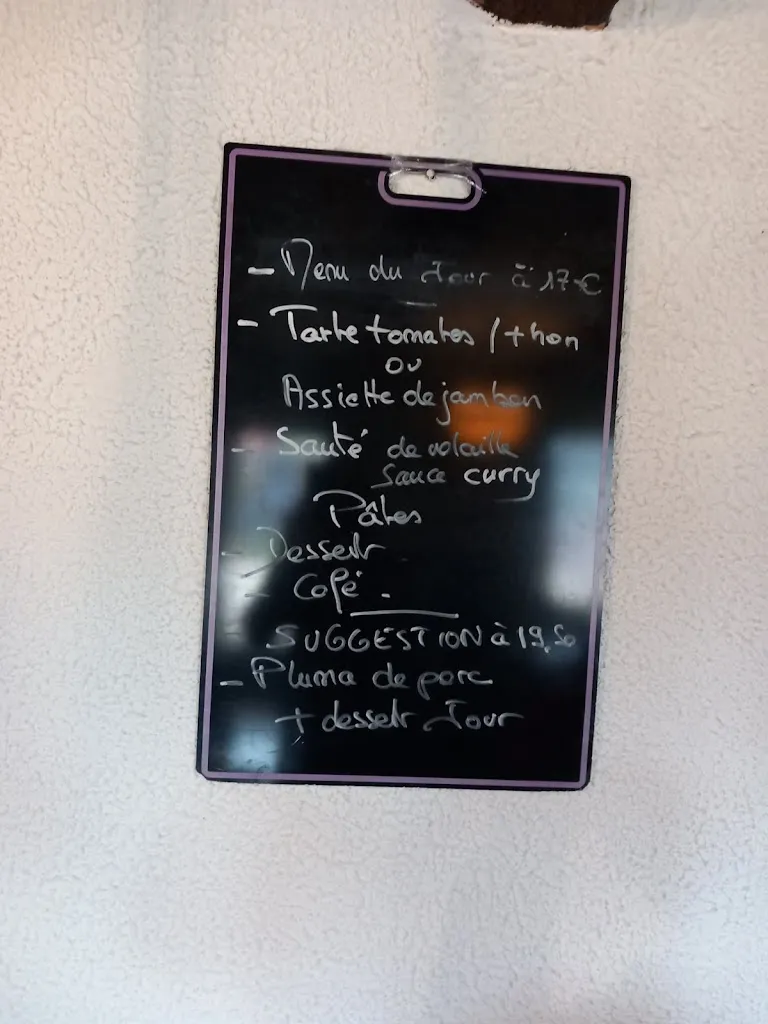 - Menu du Jour à 17 €
- Tarte tomates / thon
ou
Assiette de jambon
- Sauté de volaille
Sauce curry
Pâtes
- Dessert
- Café.
- SUGGESTION à 19,50
- Pluma de porc
+ dessert Jour